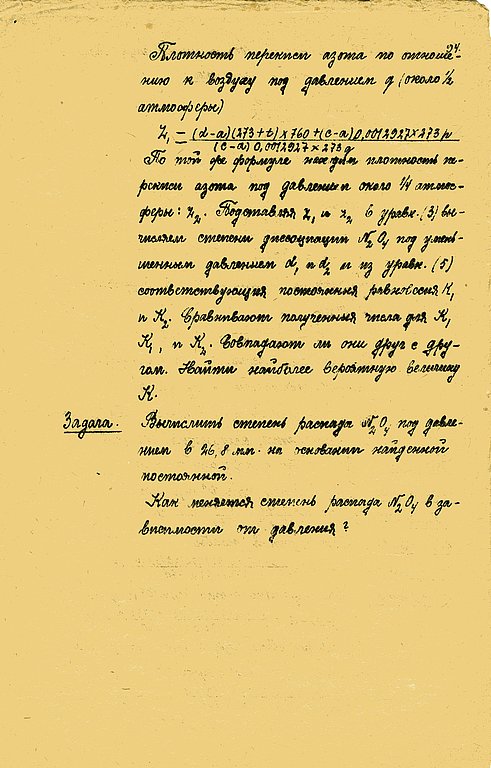 24.
Плотность перекиси азота по отноше-
нию к воздуху под давлением q (около ½
атмосферы)
Z₁ = (d-a)(273+t)×760+(c-a)0,0012927×273p / (c-a)0,0012927×273q
По той же формуле находим плотность пе-
рекиси азота под давлением около ¼ атмос-
феры: Z₂. Подставляя Z₁ и Z₂ в уравн. (3) вы-
числяем степени диссоциации N₂O₄ под умень-
шенным давлением α₁ и α₂ и из уравн. (5)
соответствующия постоянныя равновесия K₁
и K₂. Сравнивают полученныя числа для K,
K₁, и K₂. Совпадают ли они друг с дру-
гом. Найти наиболее вероятную величину
K.
Задача. Вычислить степень распада N₂O₄ под давле-
нием в 26,8 мм. на основании найденной
постоянной.
Как меняется степень распада N₂O₄ в за-
висимости от давления?